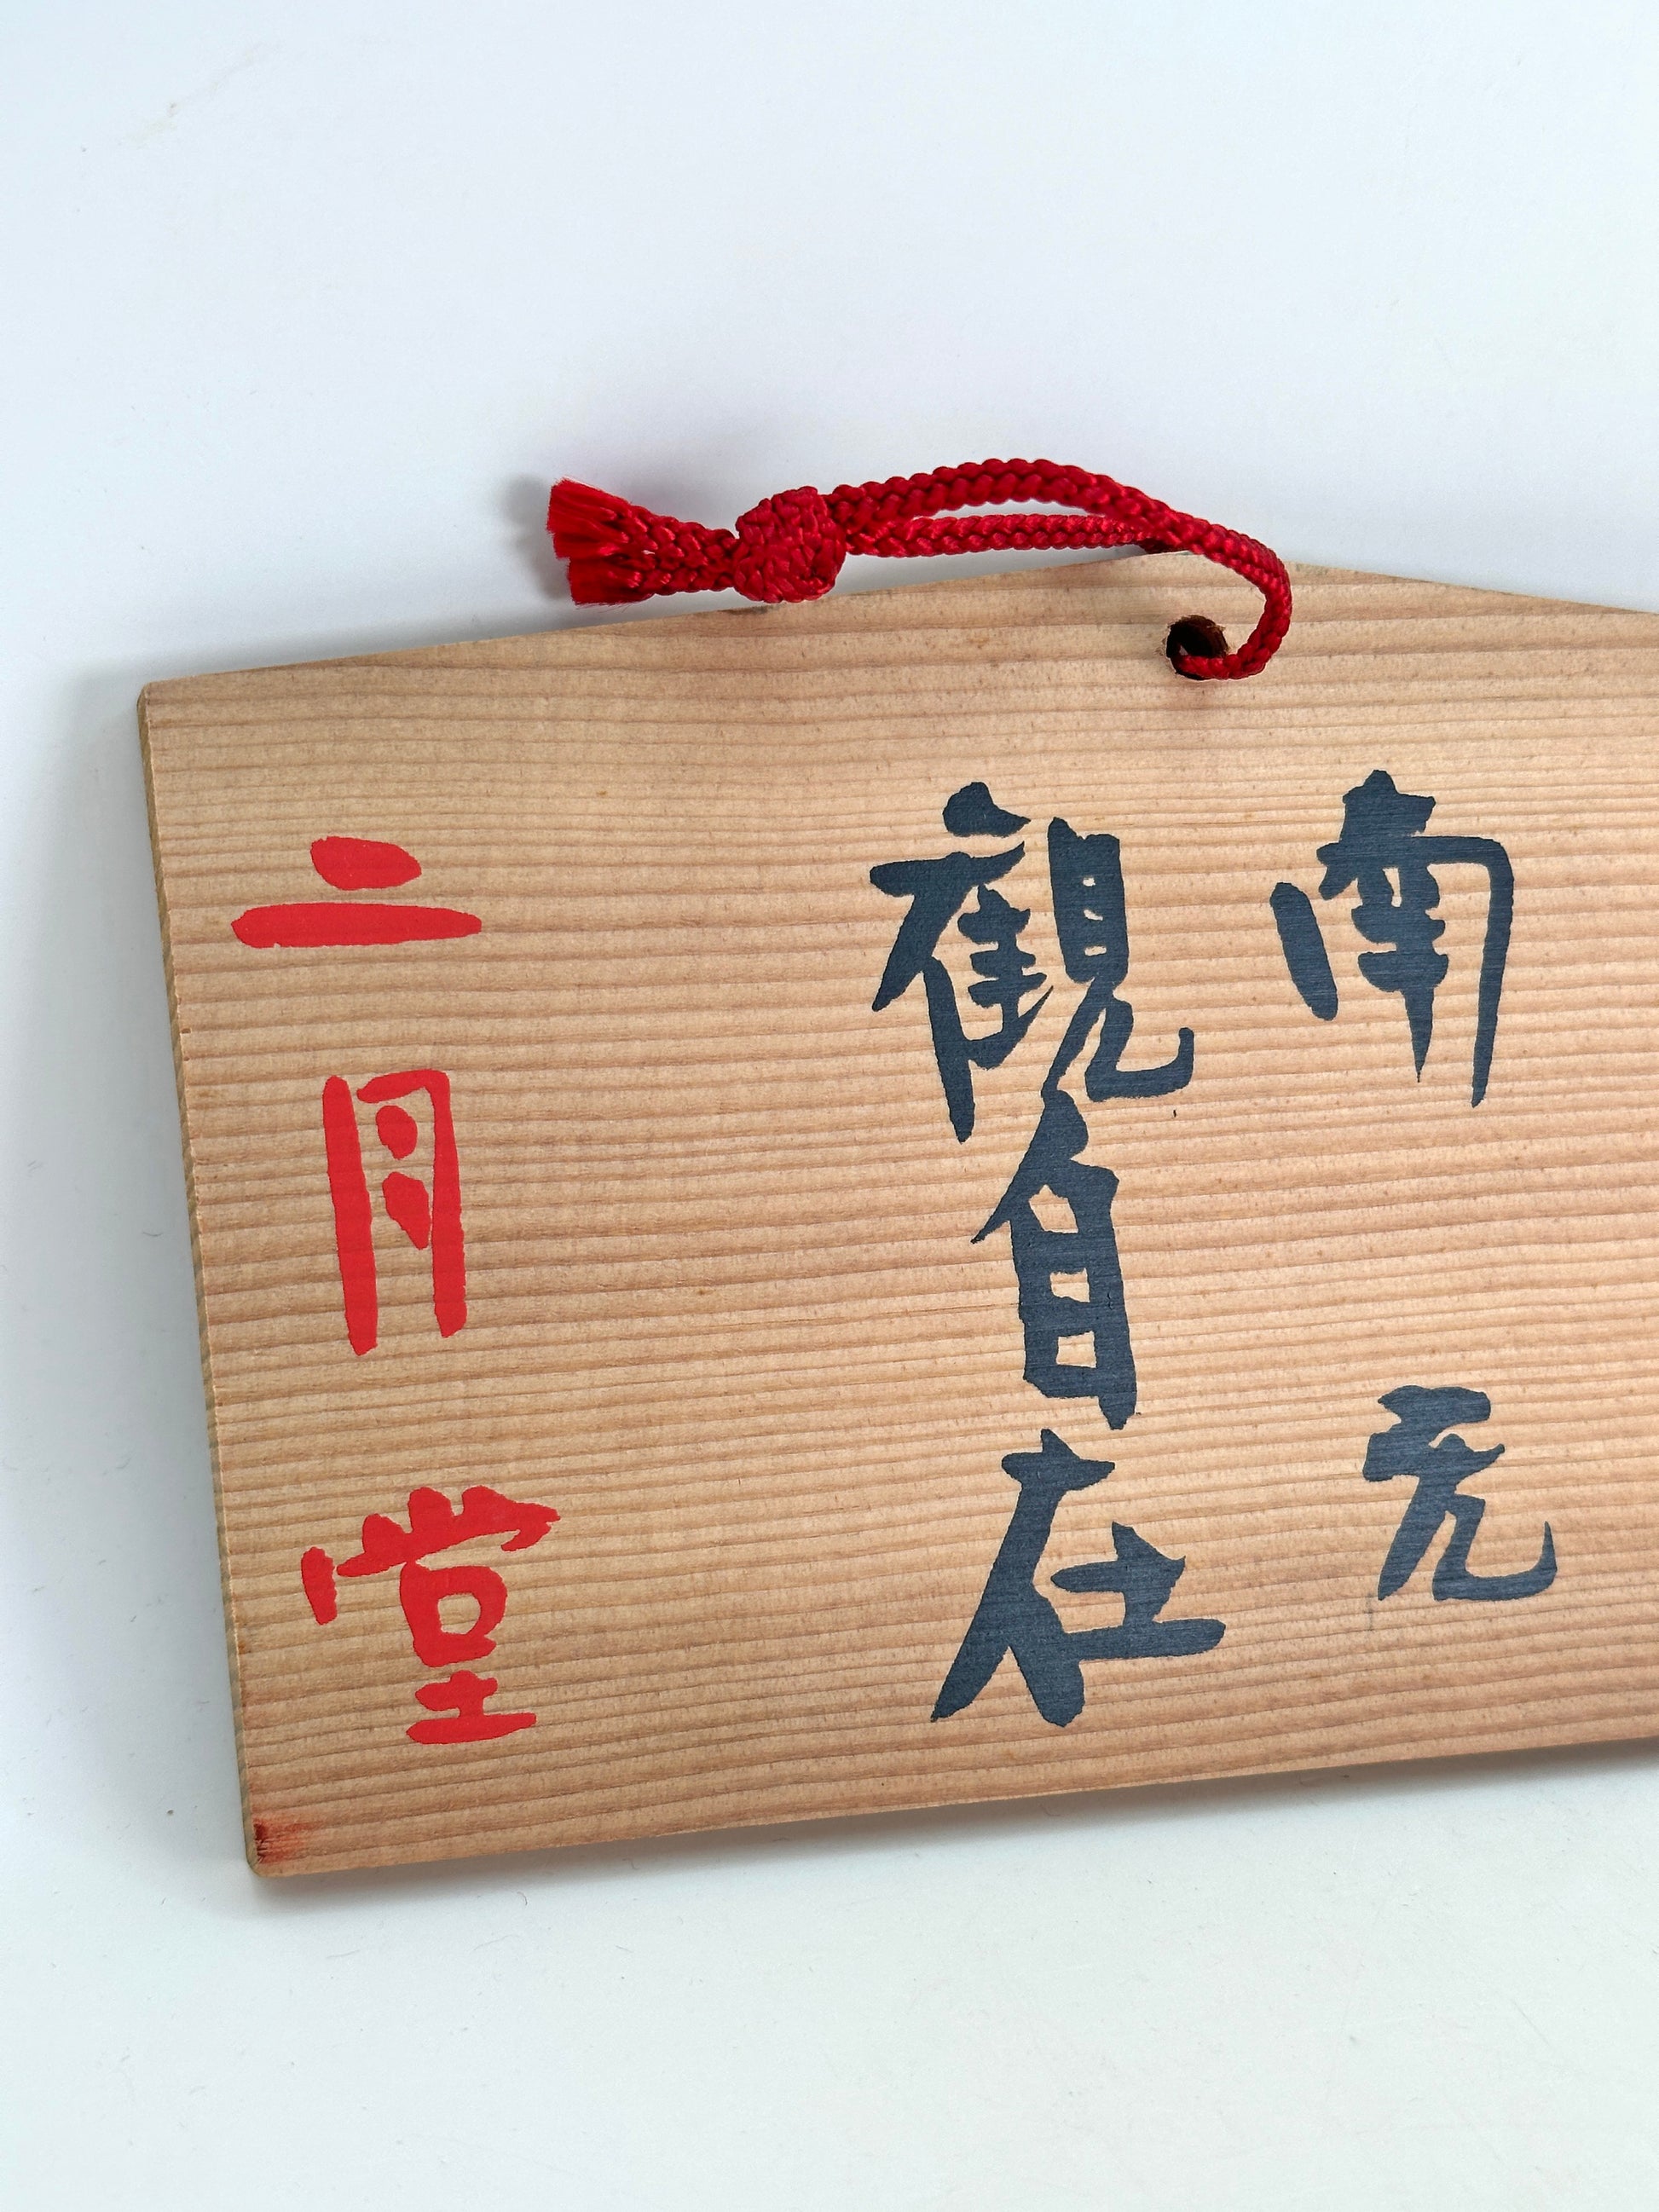 南无
観自在
二月堂